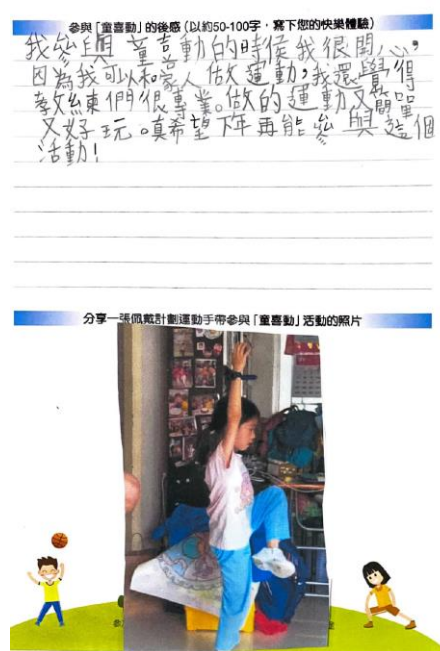 參與「童喜動」的後感（以約50-100字，寫下您的快樂體驗）
我參與童喜動的時侯我很開心，
因為我可以和家人做運動，我還覺得
教練們很專業。做的運動又簡單
又好玩。真希望下年再能參與這個
活動！
分享一張佩戴計劃運動手帶參與「童喜動」活動的照片